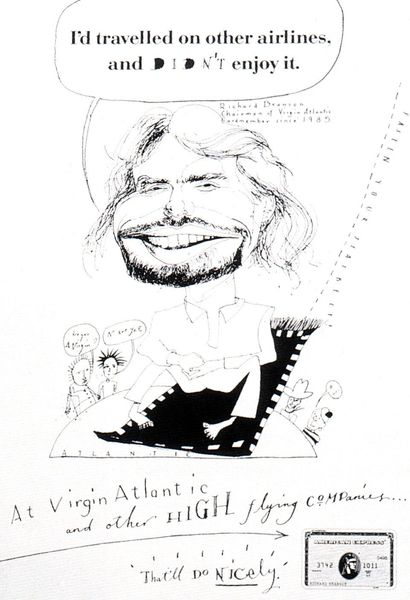 I'd travelled on other airlines,
and DIDN'T enjoy it.
Richard Branson
Chairman of Virgin Atlantic
Cardmember since 1985
ATLANTIC
At Virgin Atlantic
and other HIGH flying COMPANIES...
'That'll DO NICELY.'
AMERICAN EXPRESS
3742 1011
RICHARD BRANSON